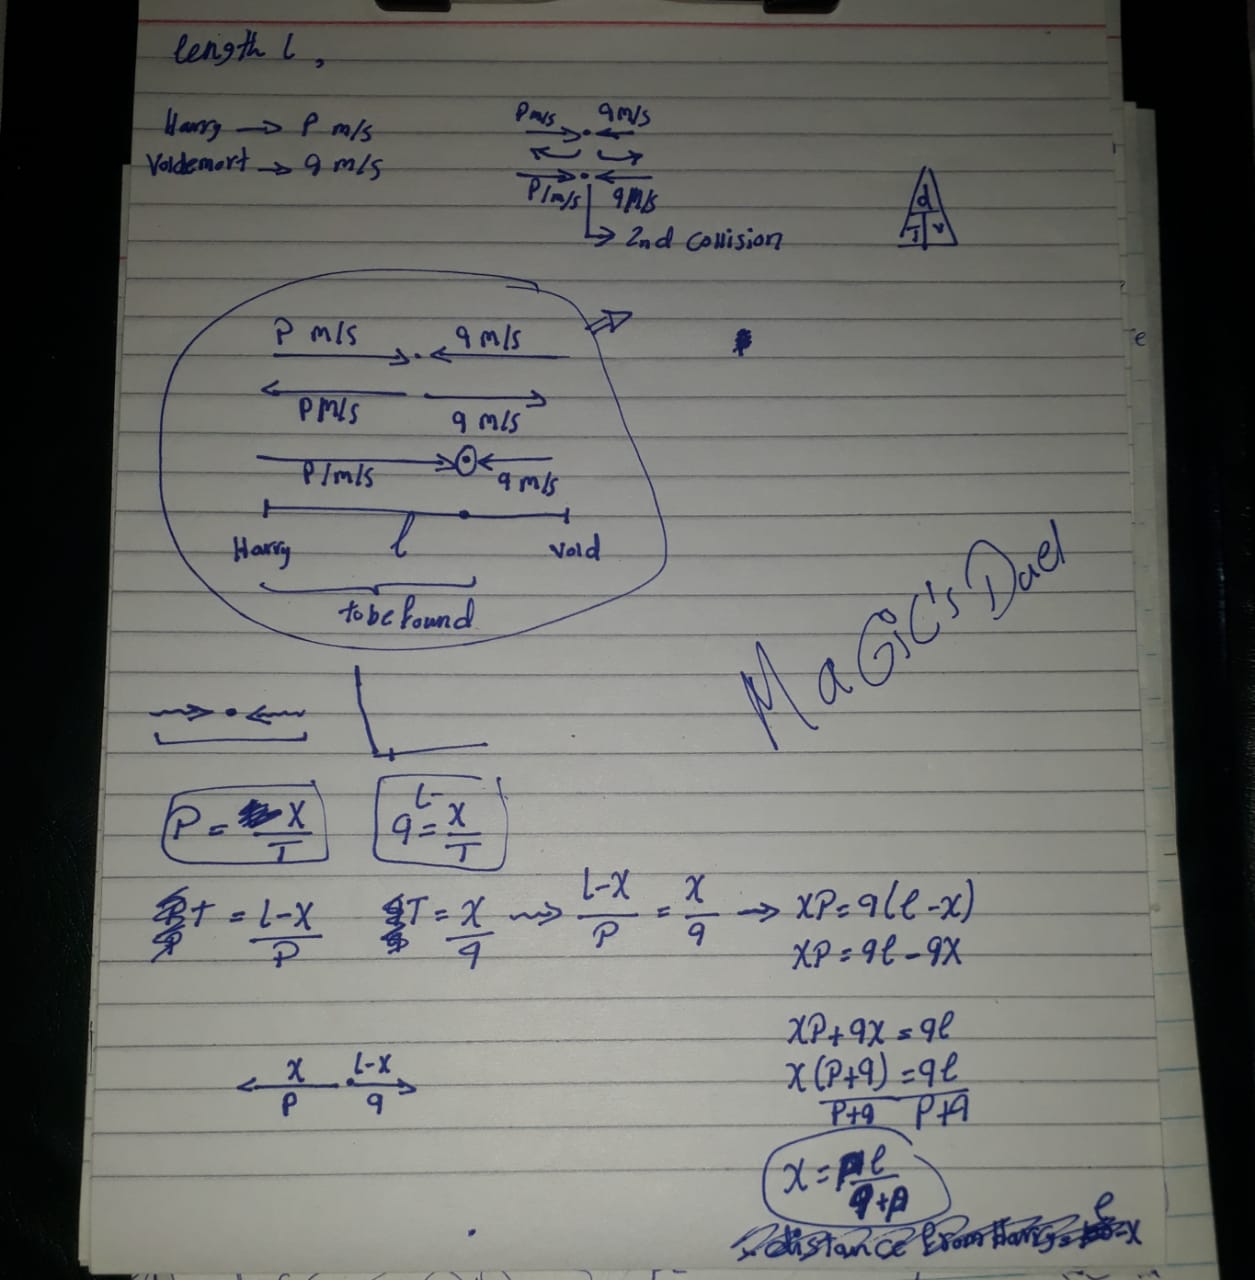 length l,
Harry → P m/s
Voldemort → q m/s
P m/s q m/s
P/m/s q m/s
2nd collision
d
T v
P m/s q m/s
P m/s q m/s
P/m/s q m/s
Harry l Vold
to be found
MaGiC's Duel
P = X/T
q = L-X/T
T = L-X/P T = X/q ⇝ L-X/P = X/q → XP = q(l-x)
XP = ql - qX
XP + qX = ql
X(P+q) = ql
P+q P+q
X L-X
P q
X = Pl/q+p
distance from Harry = l-x